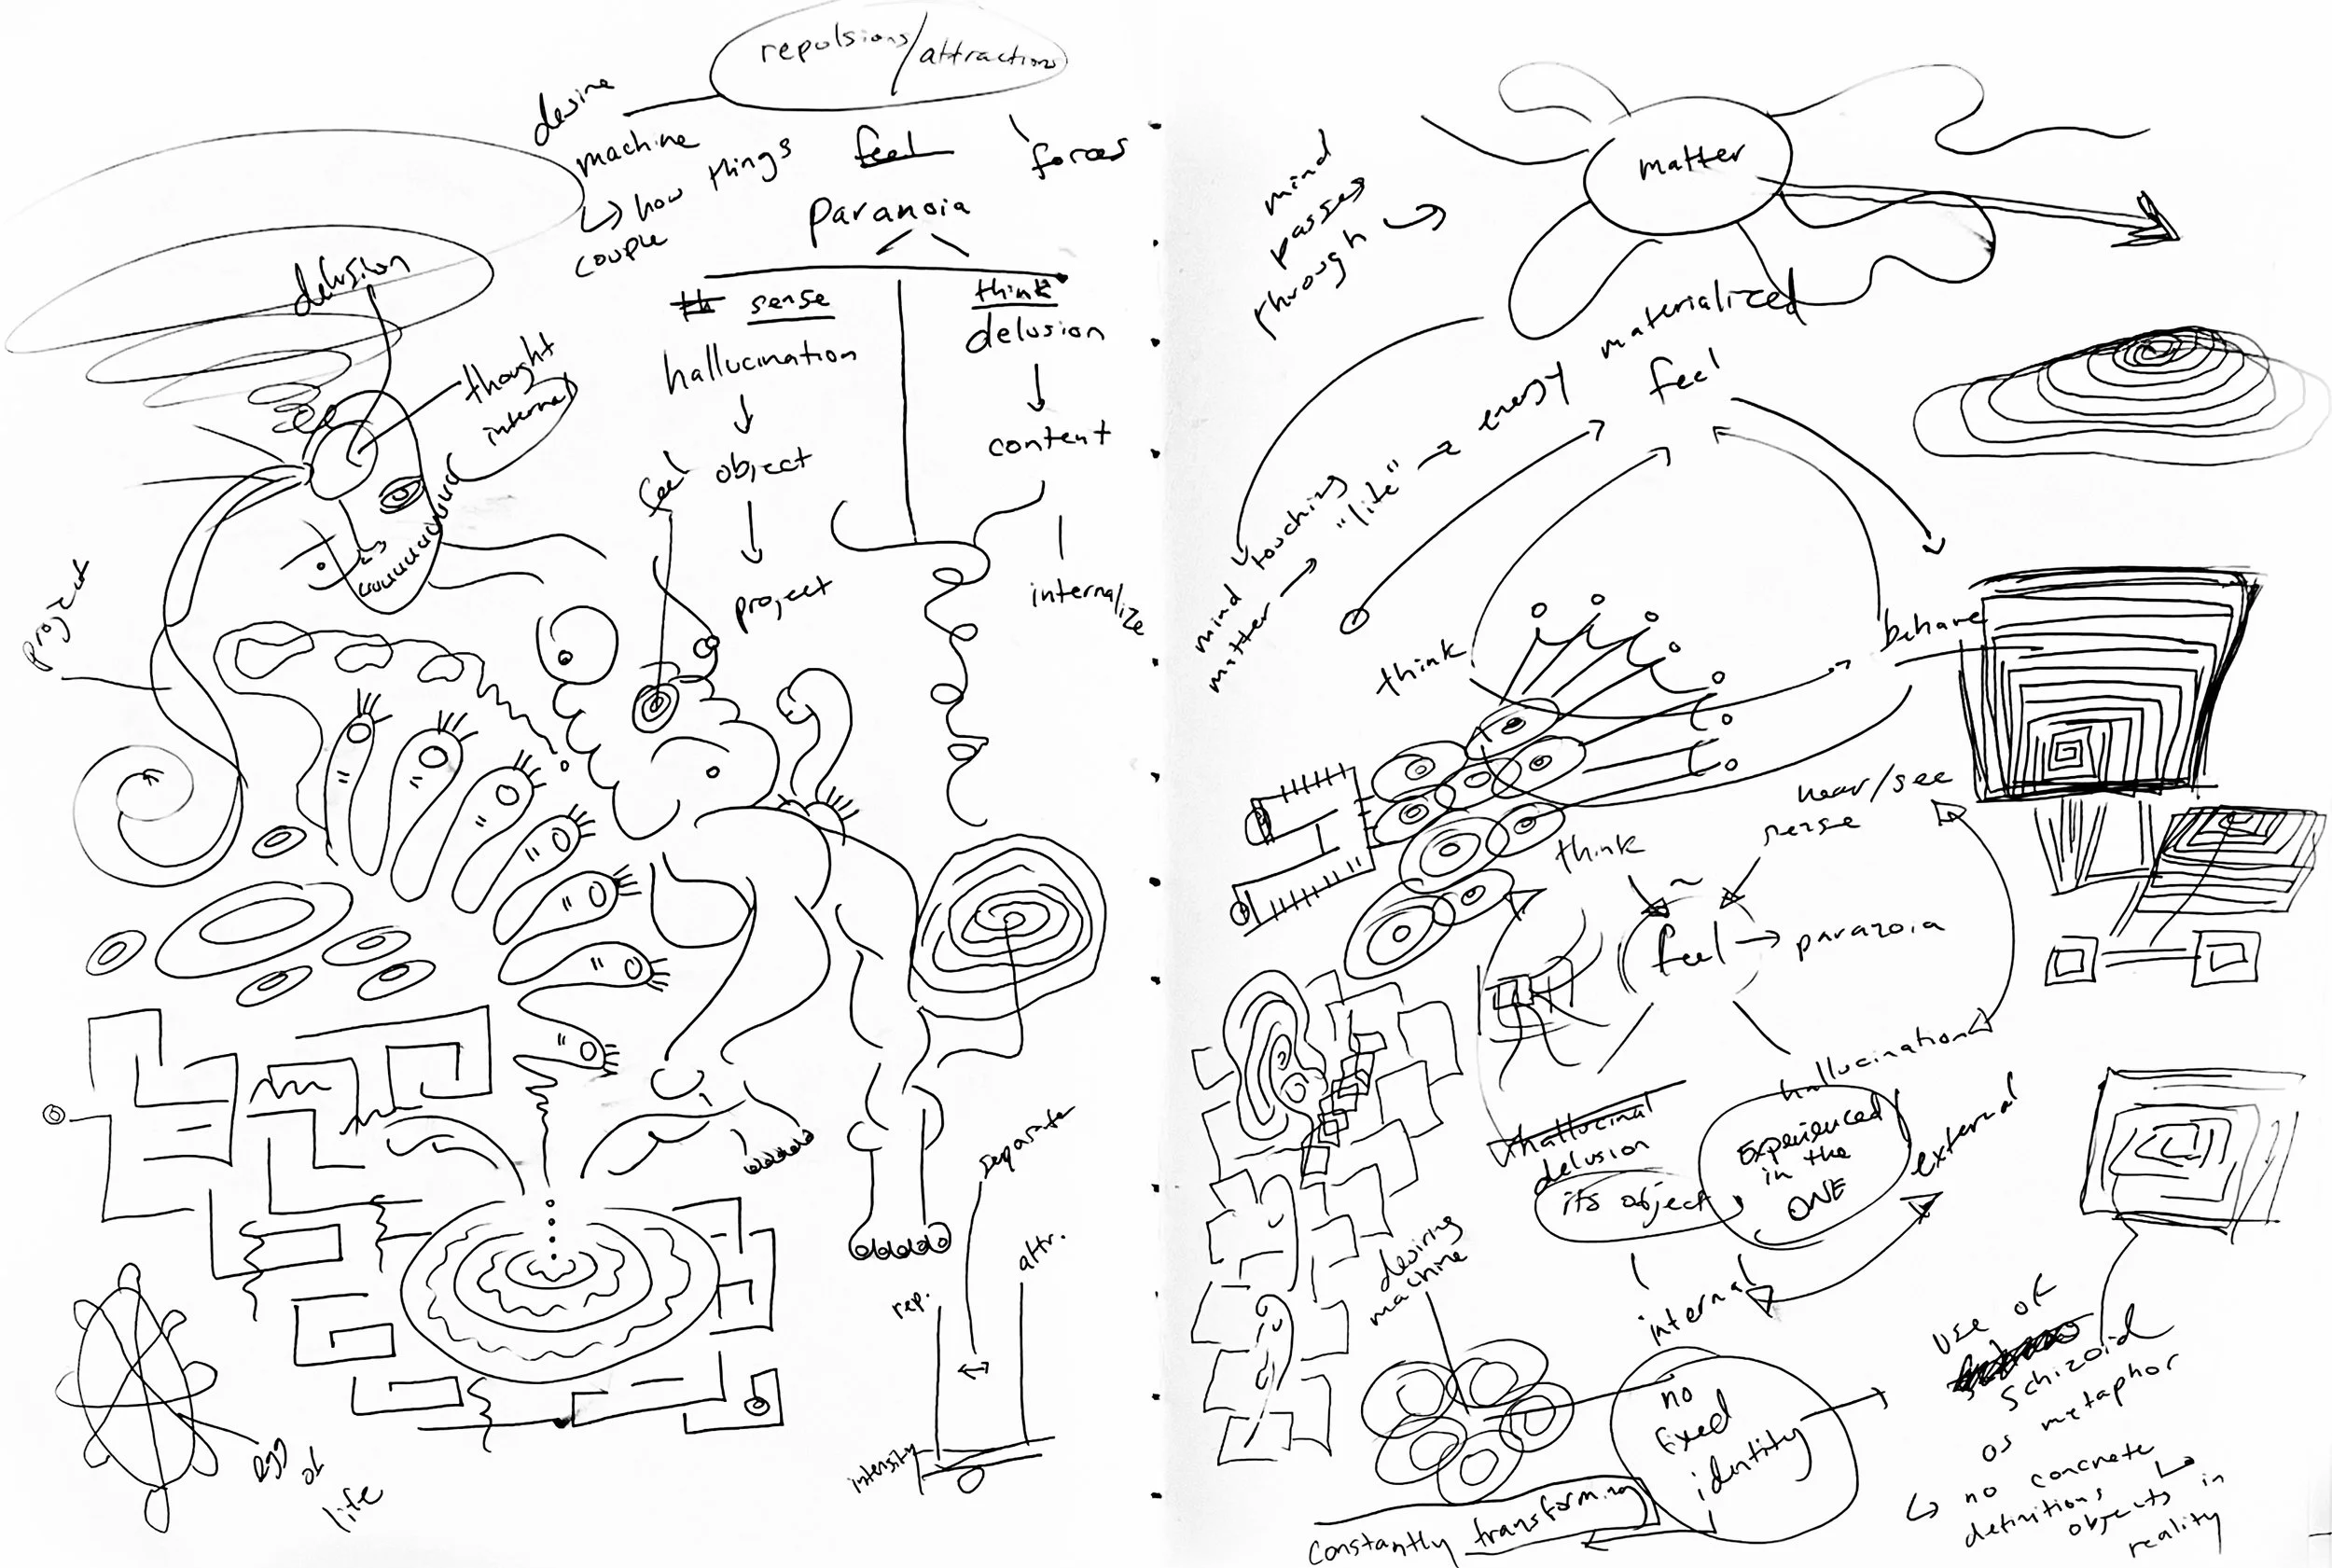 repulsions/attractions
desire
machine
↳ how things feel
couple
forces
paranoia
sense
think
hallucination
delusion
object
content
project
internalize
feel
delusion
thought
internal
project
separate
rep.
attr.
intensity
egg of
life
mind
passes
through
matter
materialized
feel
mind touching
matter → "life" → energy
think
behave
hear/see
sense
think
feel → paranoia
hallucination
hallucinal
delusion
its object
Experienced
in the
ONE
external
internal
desiring
machine
no
fixed
identity
constantly transforming
use of
schizoid
as metaphor
↳ no concrete
definitions
objects in
reality